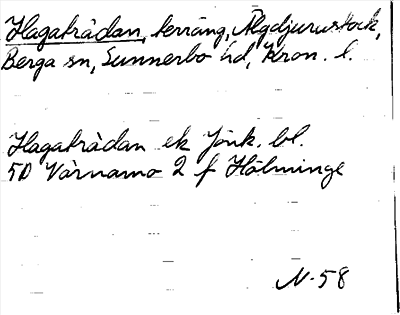 Hagatrådan, terräng, Älgdjurustock,
Berga sn, Sunnerbo hd, Kron. l.
Hagatrådan ek Jönk. bl.
5D Värnamo 2 f Hölminge
N-58